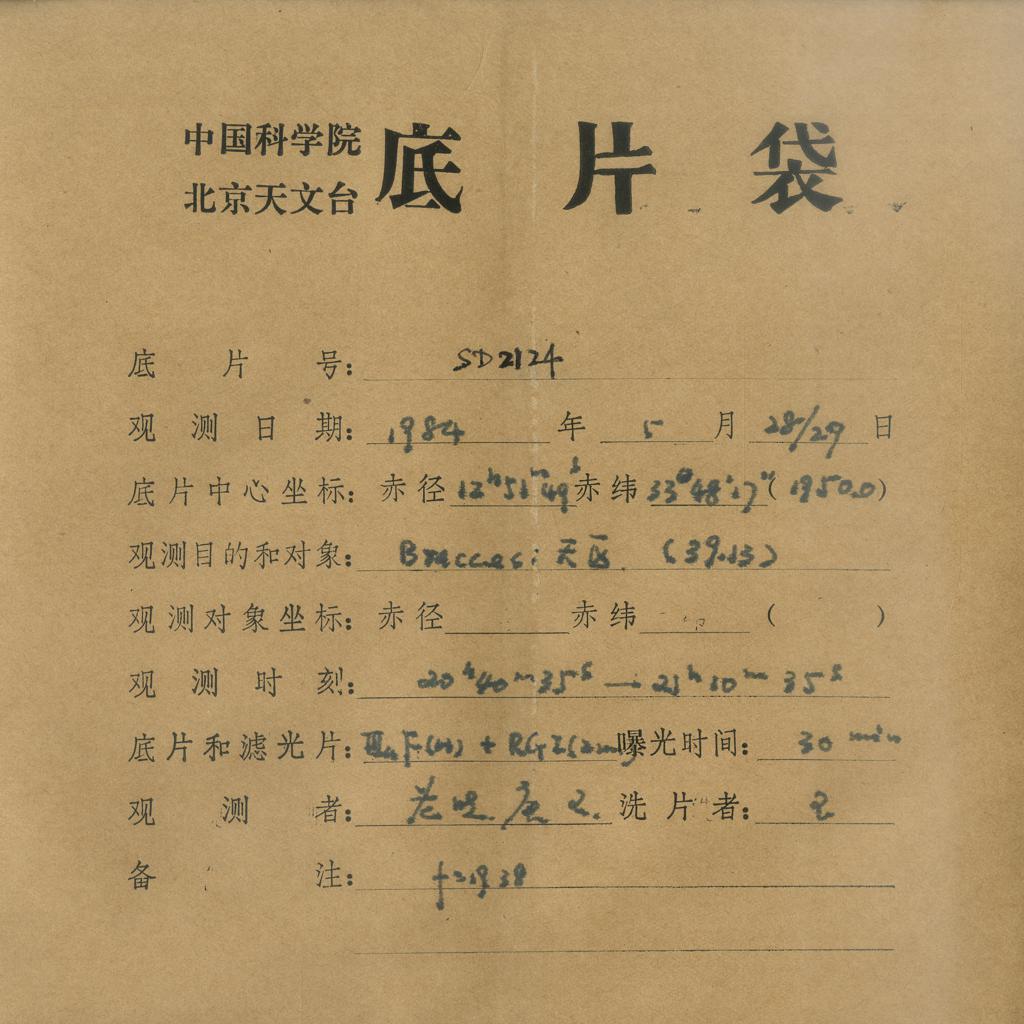 中国科学院
北京天文台
底片袋
底片号: SD2124
观测日期: 1984 年 5 月 28/29 日
底片中心坐标: 赤径 12h51m49s 赤纬 33°48'17" (1950.0)
观测目的和对象: Braccesi 天区 (39.13)
观测对象坐标: 赤径 赤纬 ( )
观测时刻: 20h40m35s → 21h10m35s
底片和滤光片: 曝光时间: 30 min
观测者: 洗片者:
备注: f=19.38